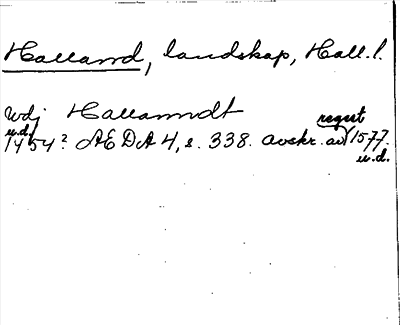 Halland, landskap, Hall.l.
wdj Hallanndt
u.d. regest
1454? AEDA 4, s. 338. avskr. av 1577.
u.d.